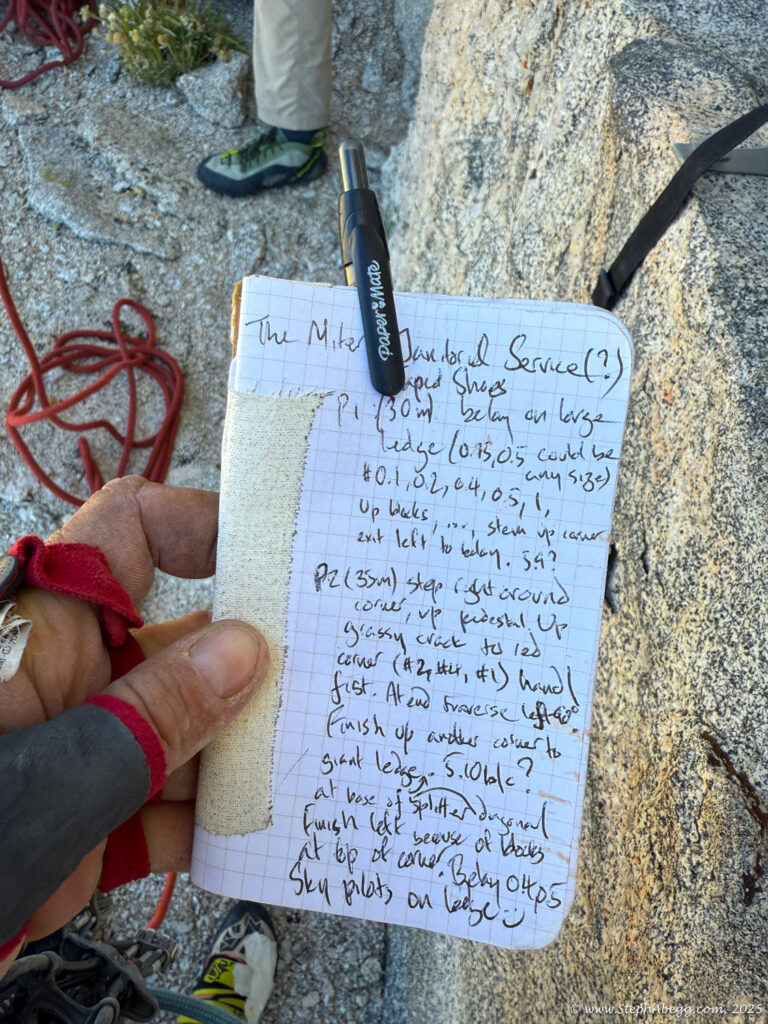 The Miter Janitorial Service(?)
aped Shoes
P1 (30m) belay on large
ledge (0.75, 0.5 could be
any size)
#0.1, 0.2, 0.4, 0.5, 1,
up blocks, ..., stem up corner
exit left to belay. 5.9?
P2 (35m) step right around
corner, up pedestal. Up
grassy crack to red
corner (#2, #4, #1) hand/
fist. At end traverse left
Finish up another corner to
giant ledge. 5.10b/c?
at base of splitter diagonal
Finish left because of blocks
at top of corner. Belay 0.4 p5
Sky pilots on ledge
Paper Mate
© www.StephAbegg.com, 2025